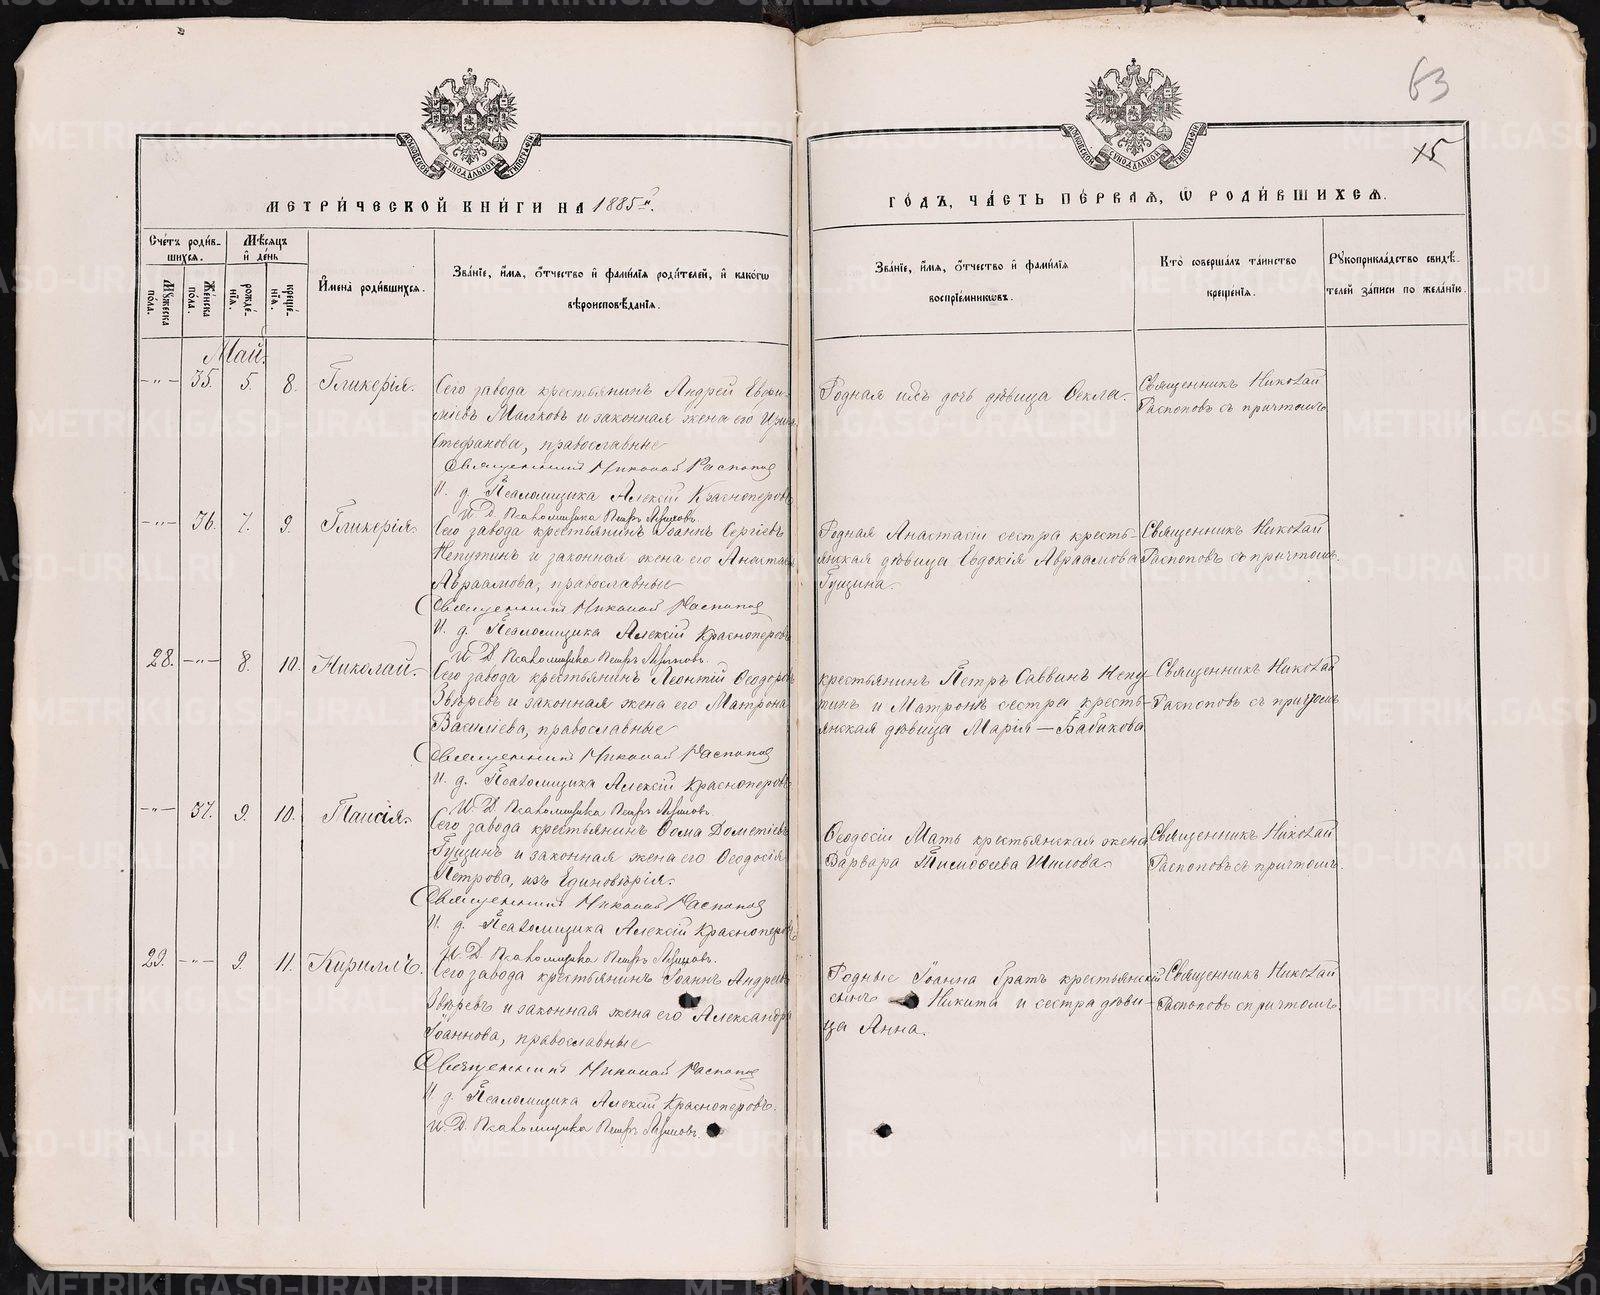 63
15
МЕТРИ́ЧЕСКОЙ КНИ́ГИ НА 1885й.
ГО́ДЪ, ЧА́СТЬ ПЕ́РВАЯ, Ѿ РОДИ́ВШИХСЯ.
Сче́тъ роди́в-
шихся.
Мѣ́сяцъ
и҆ де́нь
Му́жеска по́ла.
Же́нска по́ла.
рожде́-
нїѧ.
креще́-
нїѧ.
И҆мена̀ роди́вшихся.
Зва́нїе, и҆́мя, ѻ҆́тчество и҆ фами́лїя роди́телей, и҆ како́гѡ
вѣроисповѣ́данїя.
Зва́нїе, и҆́мя, ѻ҆́тчество и҆ фами́лїя
воспрїе́мникѡвъ.
Кто̀ соверша́лъ та́инство
креще́нїя.
Рꙋкоприкла́дство свидѣ́-
телей за́писи по жела́нїю.
Май.
-"- 35. 5. 8. Гликерія.
Сего завода крестьянинъ Андрей Евфи-
міевъ Малковъ и законная жена его Ирина
Стефанова, православные
Священникъ Николай Распопов
И. д. Псаломщика Алексій Красноперовъ
И. Д. Псаломщика Петръ
Родная ихъ дочь дѣвица Ѳекла.
Священникъ Николай
Распоповъ съ причтомъ
-"- 36. 7. 9. Гликерія.
Сего завода крестьянинъ Іоаннъ Сергіевъ
Непутинъ и законная жена его Анастасія
Авраамова, православные
Священникъ Николай Распопов
И. д. Псаломщика Алексій Красноперовъ
И. Д. Псаломщика Петръ
Родная Анастасіи сестра кресть-
янская дѣвица Евдокія Авраамова
Гущина.
Священникъ Николай
Распоповъ съ причтомъ.
28. -"- 8. 10. Николай.
Сего завода крестьянинъ Леонтій Ѳеодоровъ
Звѣревъ и законная жена его Матрона
Василіева, православные
Священникъ Николай Распопов
И. д. Псаломщика Алексій Красноперовъ
И. Д. Псаломщика Петръ
крестьянинъ Петръ Саввинъ Непу-
тинъ и Матроны сестра кресть-
янская дѣвица Марія — Бабикова
Священникъ Николай
Распоповъ съ причтомъ
-"- 37. 9. 10. Таисія.
Сего завода крестьянинъ Ѳома Дометіевъ
Гущинъ и законная жена его Ѳеодосія
Петрова, изъ Единовѣрія.
Священникъ Николай Распопов
И. д. Псаломщика Алексій Красноперовъ
И. Д. Псаломщика Петръ
Ѳеодосіи Мать крестьянская жена
Варвара Тимоѳеева Шилова.
Священникъ Николай
Распоповъ съ причтомъ.
29. -"- 9. 11. Кириллъ.
Сего завода крестьянинъ Іоаннъ Андреевъ
Звѣревъ и законная жена его Александра
Іоаннова, православные
Священникъ Николай Распопов
И. д. Псаломщика Алексій Красноперовъ.
И. Д. Псаломщика Петръ
Родные Іоанна братъ крестьянскій
сынъ Никита и сестра дѣви-
ца Анна.
Священникъ Николай
Распоповъ с причтомъ.
METRIKI.GASO-URAL.RU